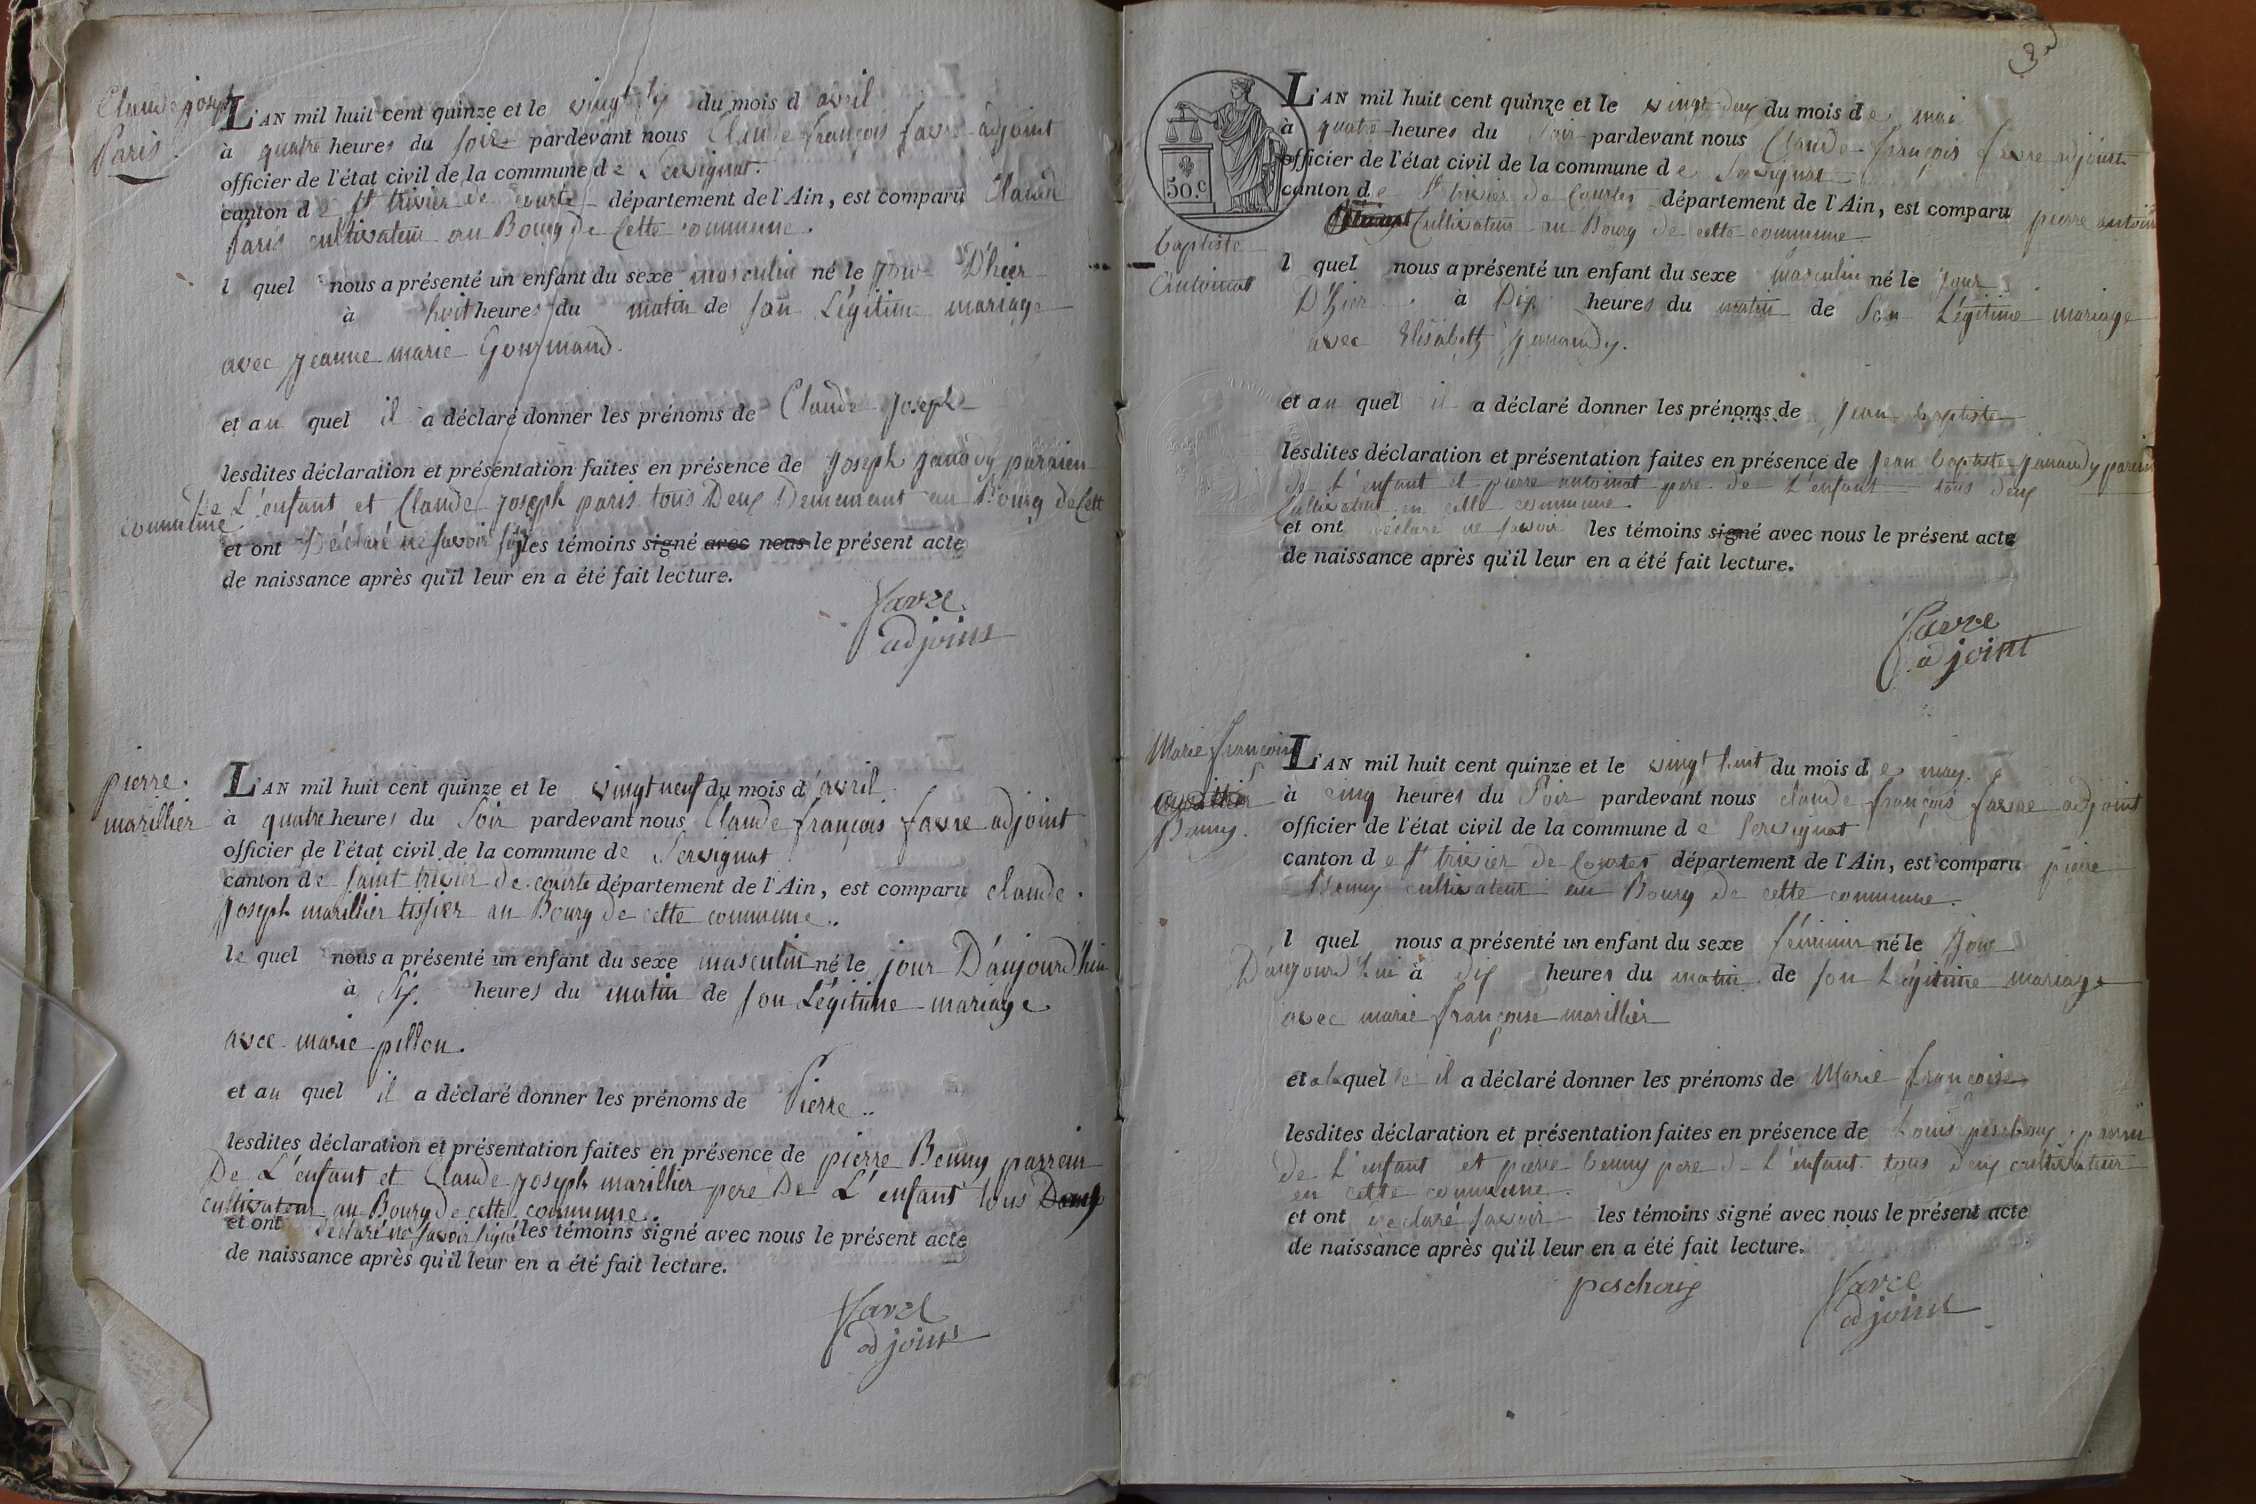 Claude joseph
Paris.
L'AN mil huit cent quinze et le vingt six du mois d avril
à quatre heures du soir pardevant nous Claude françois favre adjoint
officier de l'état civil de la commune de Servignat.
canton de St trivier de courte département de l'Ain, est comparu Claude
paris cultivateur au Bourg de Cette commune.
l quel nous a présenté un enfant du sexe masculin né le jour D'hier
à huit heures du matin de son Légitime mariage
avec jeanne marie Gourmand.
et au quel il a déclaré donner les prénoms de Claude joseph
lesdites déclaration et présentation faites en présence de joseph parrien
De L'enfant et Claude joseph paris tous Deux Demeurant au Bourg de Cette
commune
et ont Déclaré ne savoir les témoins signé avec nous le présent acte
de naissance après qu'il leur en a été fait lecture.
favre
adjoint
pierre.
marillier
L'AN mil huit cent quinze et le vingt neuf du mois d'avril
à quatre heures du Soir pardevant nous Claude françois favre adjoint
officier de l'état civil de la commune de Servignat
canton de saint trivier de courte département de l'Ain, est comparu claude
joseph marillier tissier au Bourg de cette commune.
le quel nous a présenté un enfant du sexe masculin né le jour D'aujourd'hui
à six heures du matin de son Légitime mariage
avec marie pillon.
et au quel il a déclaré donner les prénoms de Pierre..
lesdites déclaration et présentation faites en présence de pierre Benny parrein
De L'enfant et Claude joseph marillier pere De L'enfant tous Deux
cultivateur au Bourg de cette commune.
et ont déclaré ne savoir signé les témoins signé avec nous le présent acte
de naissance après qu'il leur en a été fait lecture.
favre
adjoint
3
50.c
baptiste
Antoinat
L'AN mil huit cent quinze et le vingt deux du mois de mai
à quatre heures du Soir pardevant nous Claude françois favre adjoint
officier de l'état civil de la commune de Servignat
canton de St trivier de Courtes département de l'Ain, est comparu pierre
Cultivateur au Bourg de cette commune
l quel nous a présenté un enfant du sexe masculin né le jour
D'hier à Dix heures du matin de Son Légitime mariage
avec Elisabeth janaudy.
et au quel il a déclaré donner les prénoms de jean baptiste
lesdites déclaration et présentation faites en présence de jean baptiste janaudy parein
de L'enfant et pierre antoinat pere de L'enfant tous deux
Cultivateur en cette commune
et ont déclaré ne savoir les témoins signé avec nous le présent acte
de naissance après qu'il leur en a été fait lecture.
favre
adjoint
Marie françoise
Benny.
L'AN mil huit cent quinze et le vingt huit du mois de may.
à cinq heures du Soir pardevant nous claude françois favre adjoint
officier de l'état civil de la commune de Servignat
canton de St trivier de Courtes département de l'Ain, est comparu pierre
Benny cultivateur au Bourg de cette commune.
l quel nous a présenté un enfant du sexe féminin né le jour
D'aujourd'hui à dix heures du matin de son Légitime mariage
avec marie françoise marillier
et a laquel il a déclaré donner les prénoms de Marie françoise
lesdites déclaration et présentation faites en présence de Louis parrin
de L'enfant et pierre benny pere de L'enfant tous deux cultivateur
en cette commune.
et ont déclaré savoir les témoins signé avec nous le présent acte
de naissance après qu'il leur en a été fait lecture.
favre
adjoint